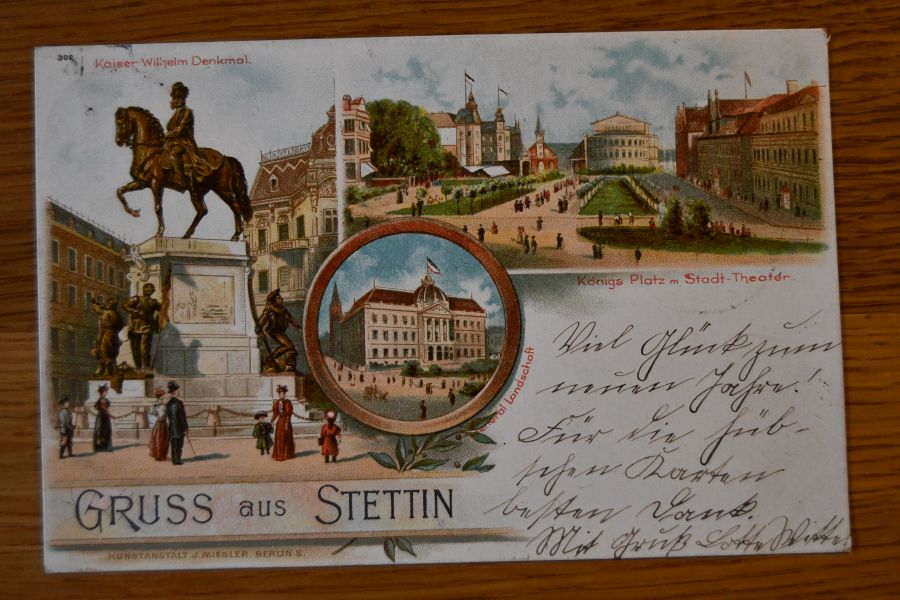 308
Kaiser Wilhelm Denkmal.
Königs Platz m Stadt-Theater.
eral Landschaft
Viel Glück zum
neuen Jahre!
Für die hüb-
schen Karten
besten Dank.
Mit Gruß Lotte
GRUSS aus STETTIN
KUNSTANSTALT J. MIESLER BERLIN S.